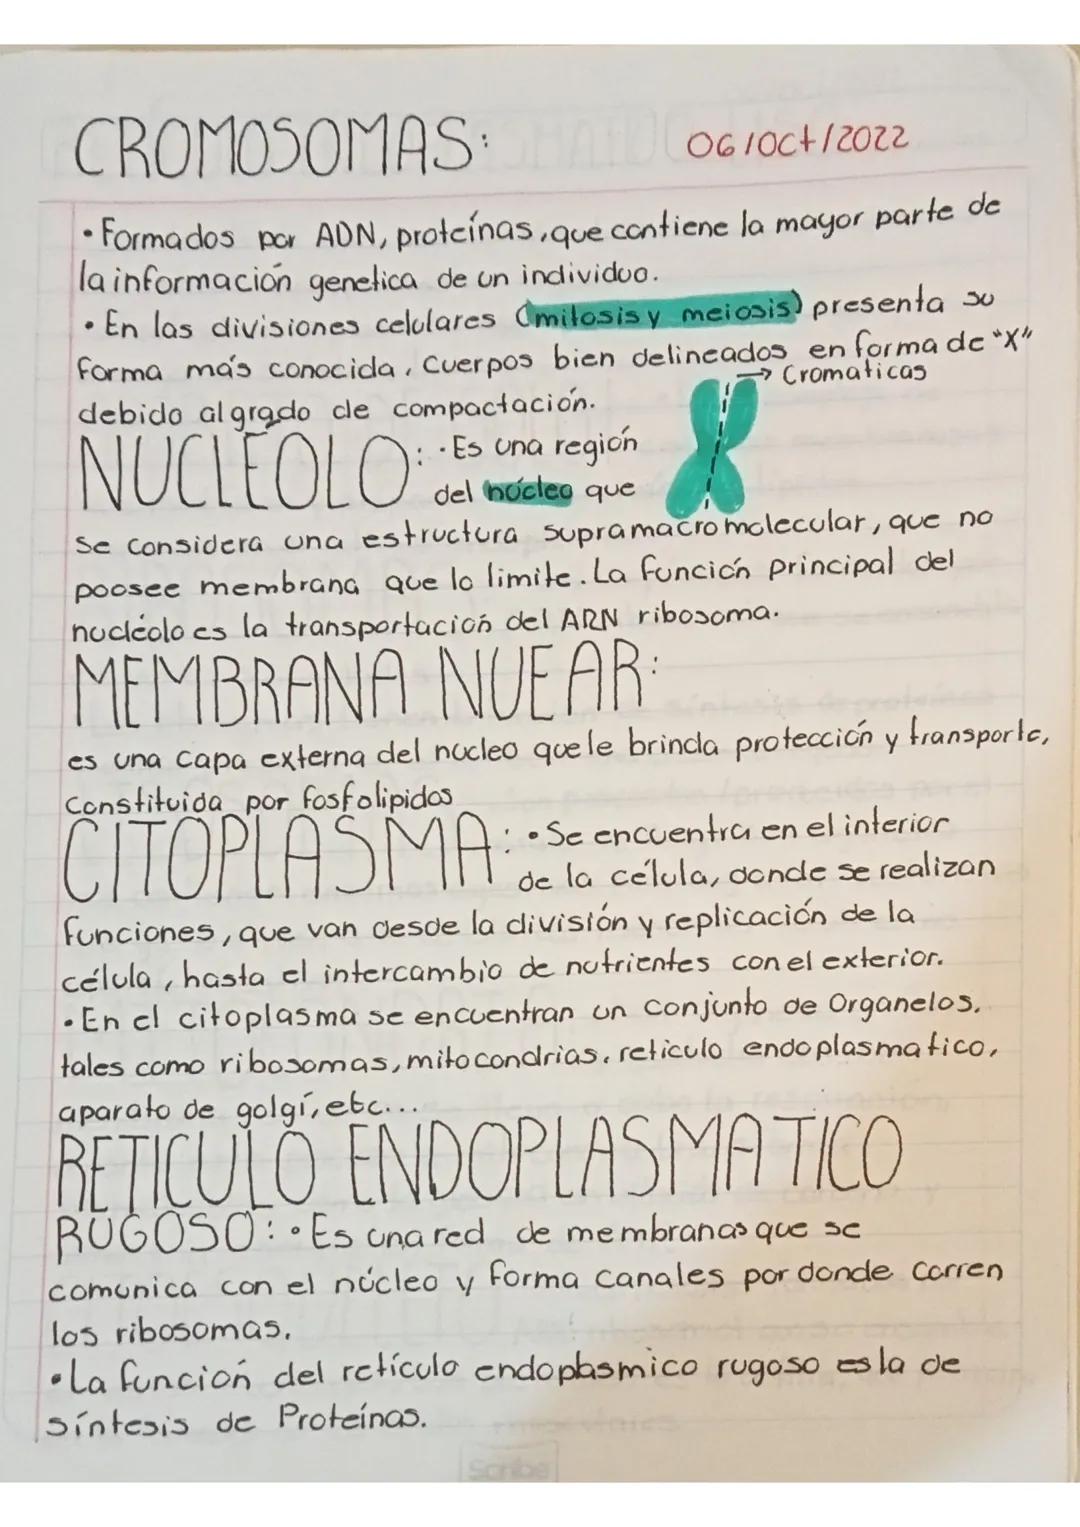 CROMOSOMAS: 06/Oct/2022
• Formados por ADN, proteínas, que contiene la mayor parte de
la información genetica de un individuo.
• En las divisiones celulares (mitosis y meiosis) presenta su
forma más conocida, cuerpos bien delineados en forma de "X"
→ Cromaticas
debido al grado de compactación.
NUCLÉOLO: • Es una región
del núcleo que
se considera una estructura supramacromolecular, que no
poosee membrana que lo limite. La función principal del
nucléolo es la transportación del ARN ribosoma.
MEMBRANA NUEAR:
es una capa externa del nucleo que le brinda protección y transporte,
constituida por fosfolipidos
CITOPLASMA: • Se encuentra en el interior
de la célula, donde se realizan
funciones, que van desde la división y replicación de la
célula, hasta el intercambio de nutrientes con el exterior.
• En el citoplasma se encuentran un conjunto de Organelos,
tales como ribosomas, mitocondrias, reticulo endoplasmatico,
aparato de golgí, etc...
RETICULO ENDOPLASMATICO
RUGOSO: • Es una red de membranas que se
comunica con el núcleo y forma canales por donde corren
los ribosomas.
• La función del retículo endoplasmico rugoso es la de
síntesis de Proteínas.
Scribe